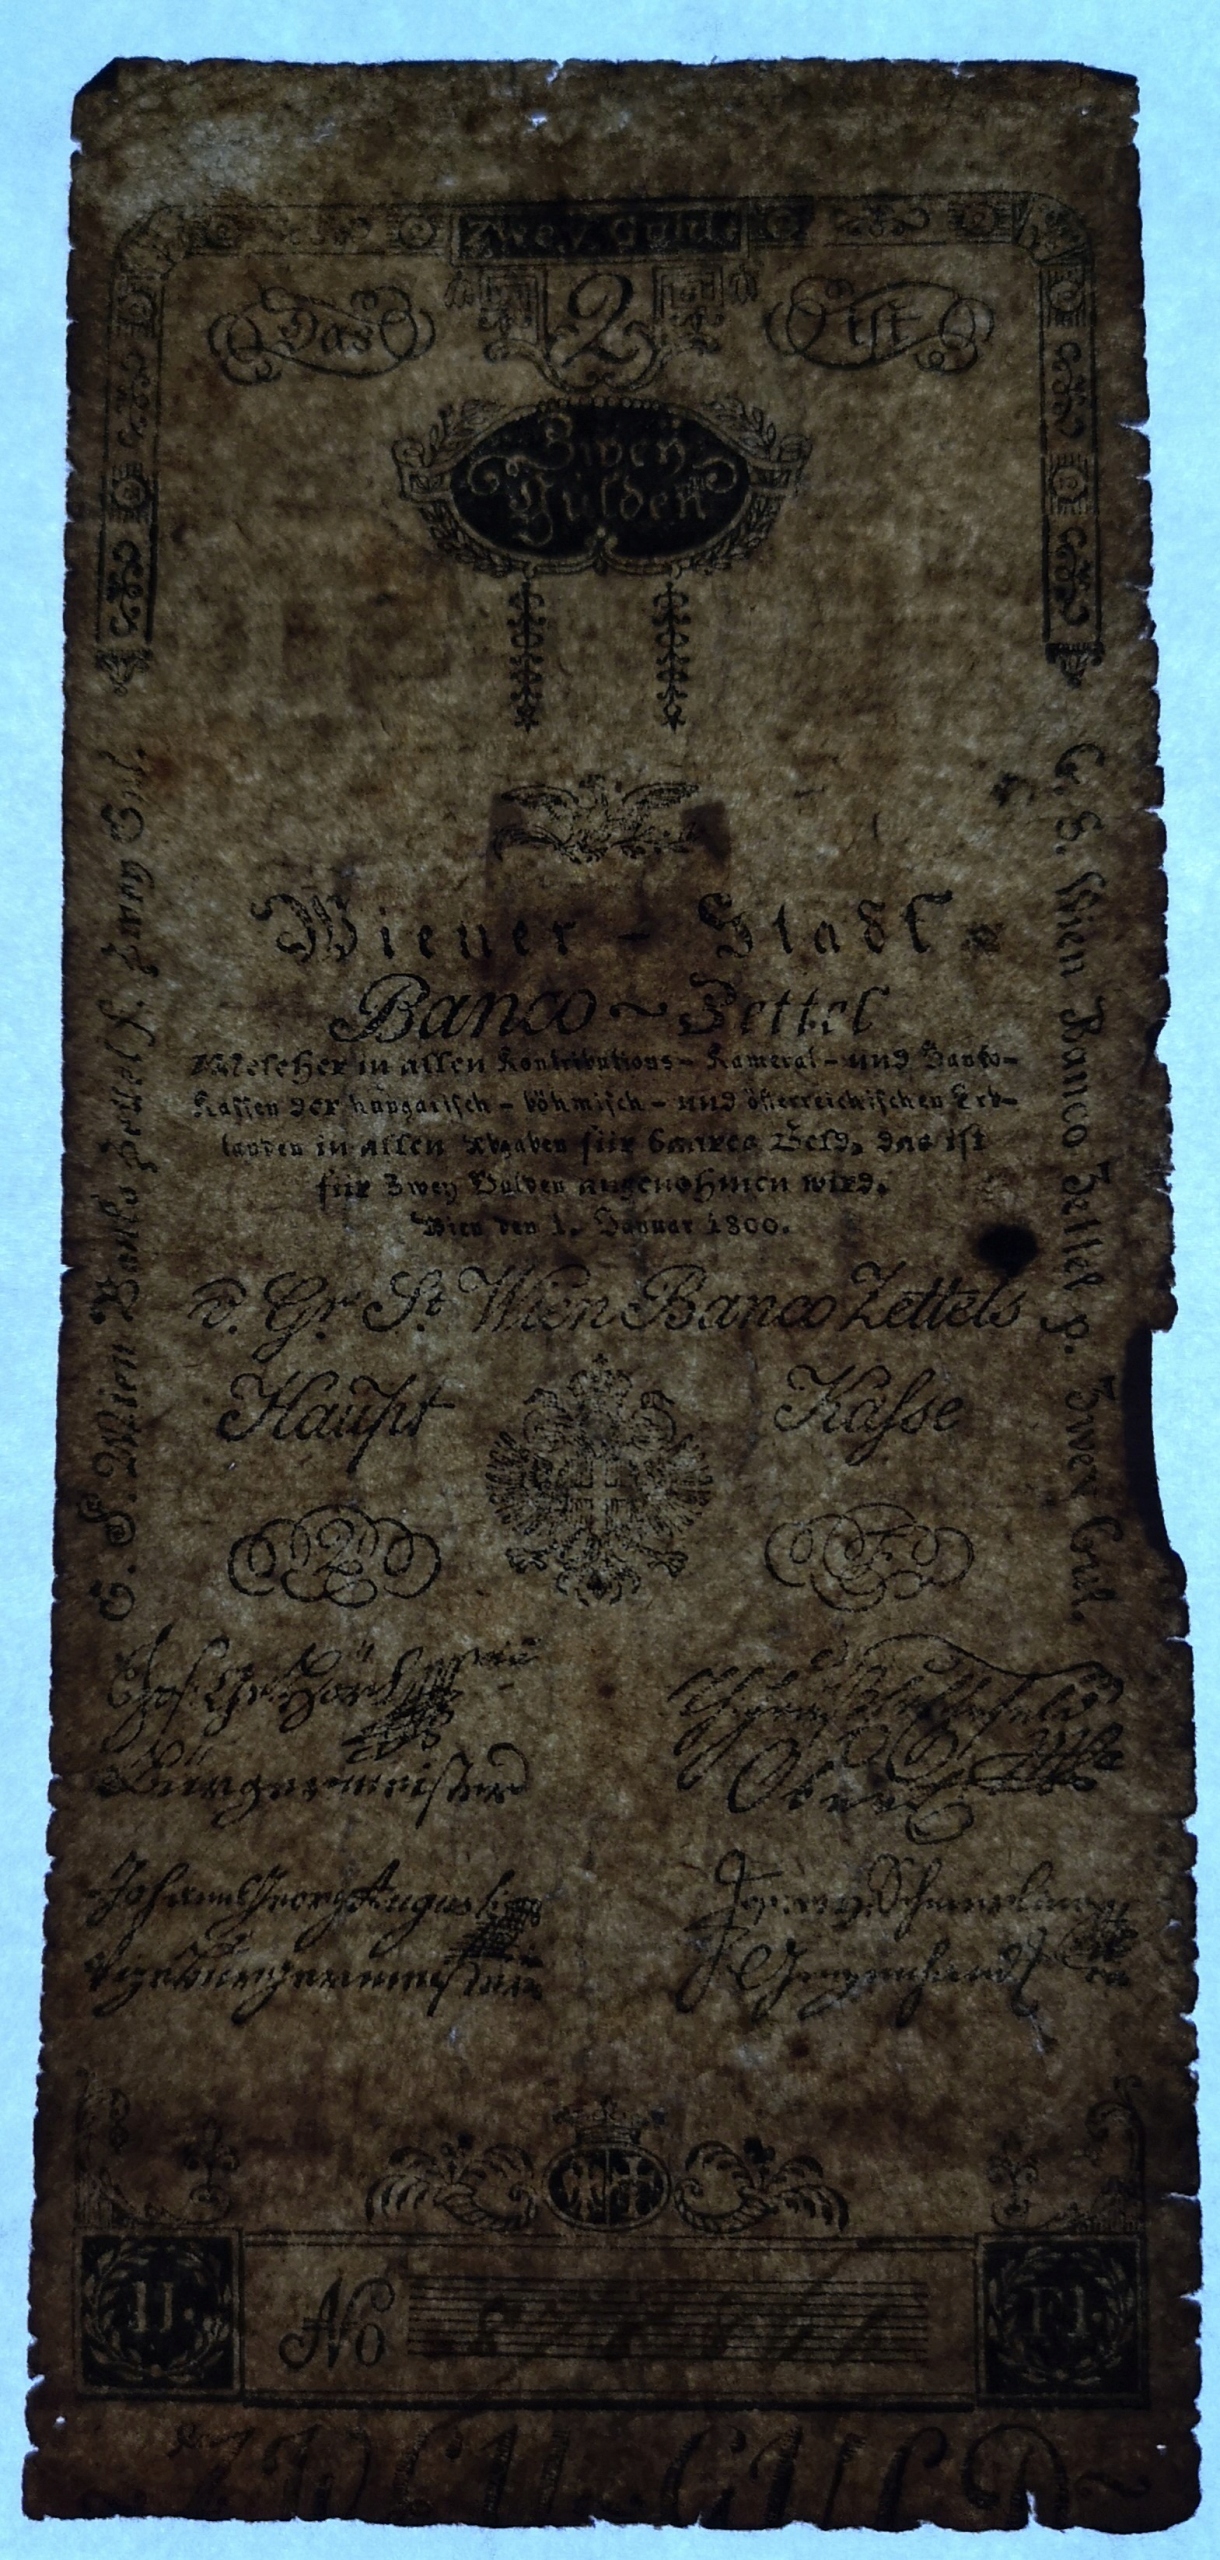 Zwey Guld:
Das 2 ist
Zwey
Gulden
Wiener - Stadt
Banco ~ Zettel
Welcher in allen Kontributions - Kameral - und Banko-
Kassen der hungarisch - böhmisch - und österreichischen Erb-
landen in allen Abgaben für baares Geld, das ist
für Zwey Gulden angenohmen wird.
Wien den 1. Januar 1800.
v. Gr. St. Wien Banco Zettels
Haupt Kasse
2 F
G. S. Wien Banco Zettel p. Zwey Gul.
G. S. Wien Banco Zettel p. Zwey Gul.
Bürgermeister
Johann Georg Augustin
Vizebürgermeister
II. No Fl.